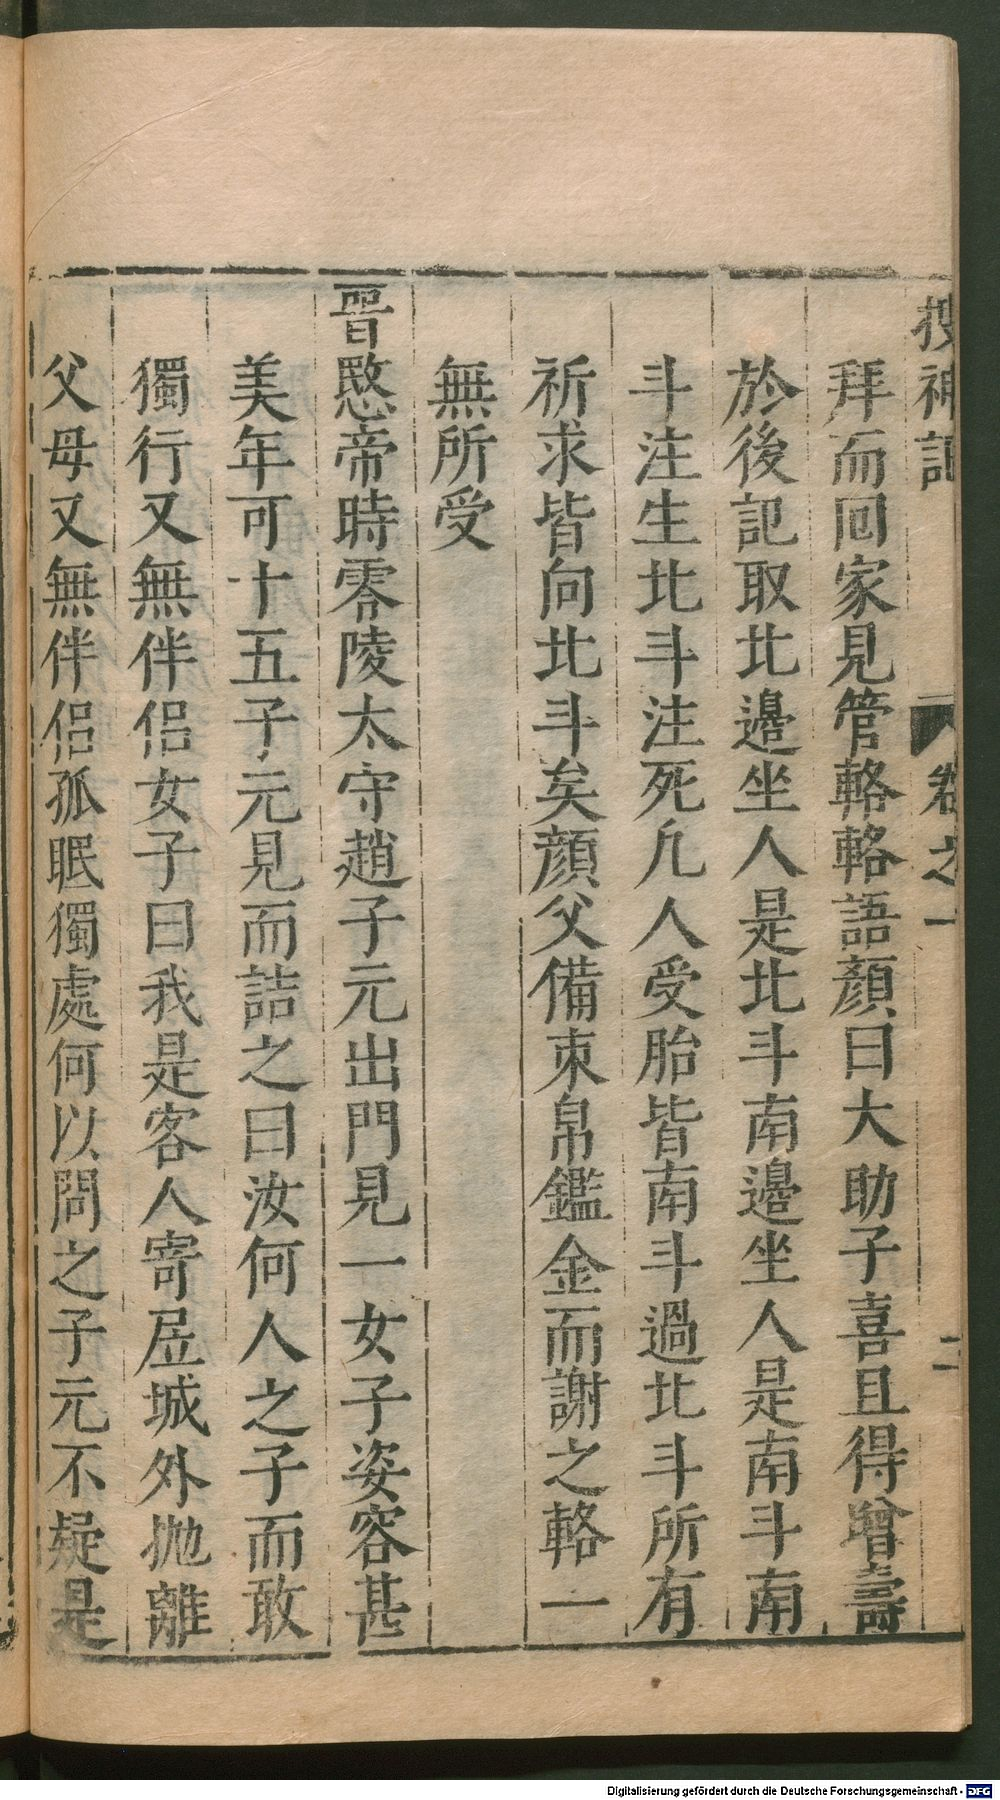 搜神記 卷之一 二
拜而回家見管輅輅語顏曰大助子喜且得增壽
於後記取北邊坐人是北斗南邊坐人是南斗南
斗注生北斗注死凢人受胎皆南斗過北斗所有
祈求皆向北斗矣顏父備束帛鑑金而謝之輅一
無所受
晋愍帝時零陵太守趙子元出門見一女子姿容甚
美年可十五子元見而詰之曰汝何人之子而敢
獨行又無伴侣女子曰我是客人寄居城外抛離
父母又無伴侣孤眠獨處何以問之子元不疑是
Digitalisierung gefördert durch die Deutsche Forschungsgemeinschaft - DFG